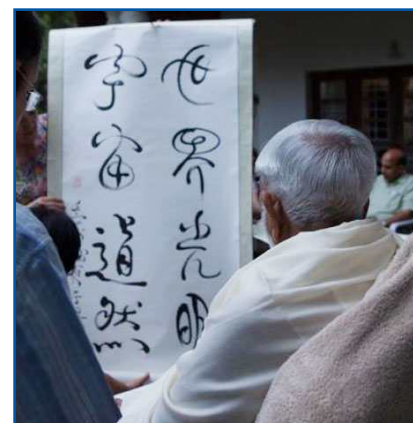 世界光明
宇宙道然